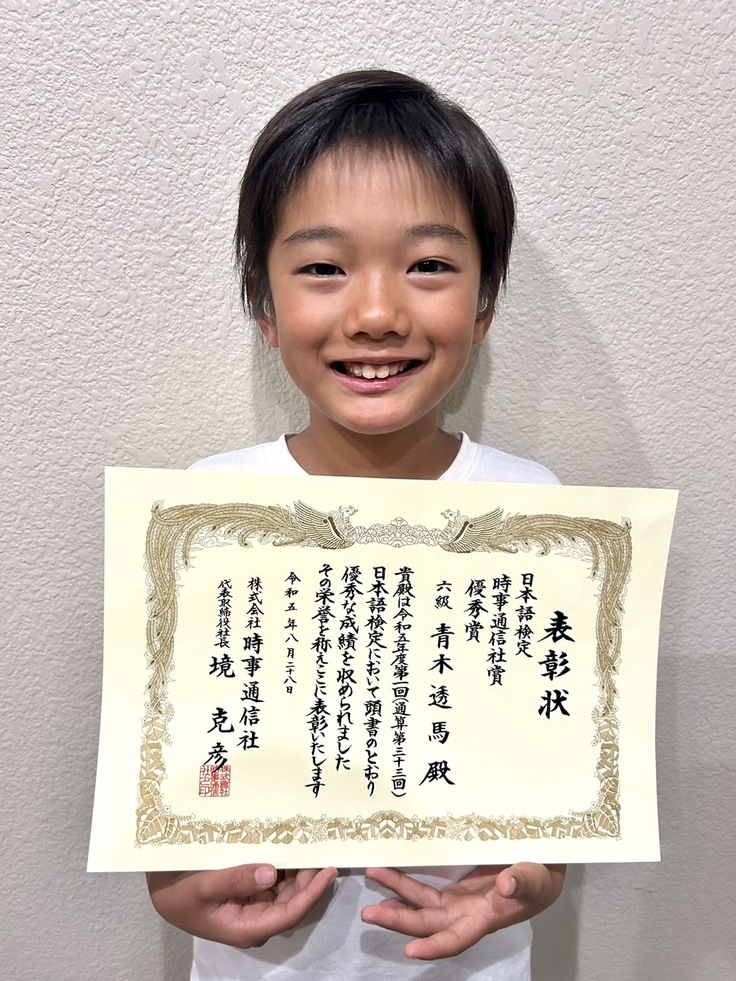 表彰状
日本語検定
時事通信社賞
優秀賞
六級 青木透馬殿
貴殿は令和五年度第一回(通算第三十三回)
日本語検定において頭書のとおり
優秀な成績を収められました
その栄誉を称えここに表彰いたします
令和五年八月二十八日
株式会社 時事通信社
代表取締役社長 境克彦